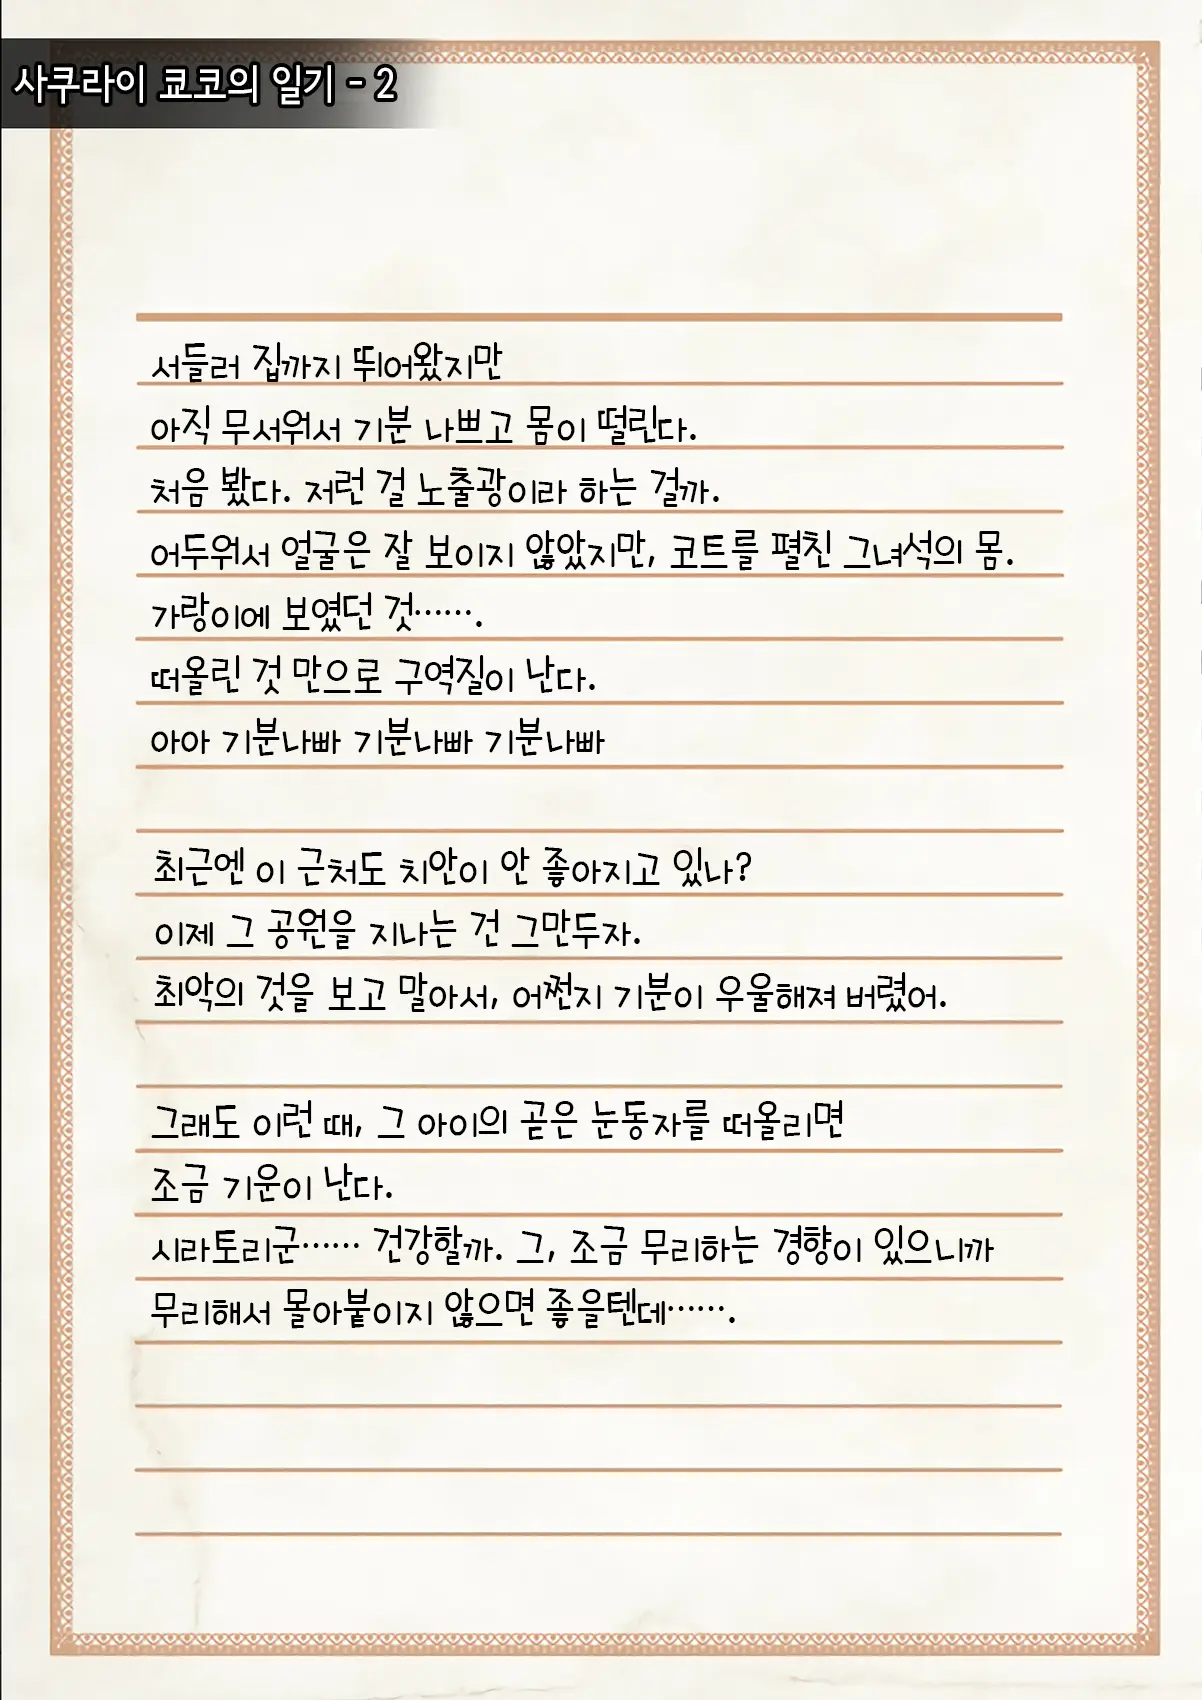 사쿠라이 쿄코의 일기 - 2
서들러 집까지 뛰어왔지만
아직 무서워서 기분 나쁘고 몸이 떨린다.
처음 봤다. 저런 걸 노출광이라 하는 걸까.
어두워서 얼굴은 잘 보이지 않았지만, 코트를 펼친 그녀석의 몸.
가랑이에 보였던 것…….
떠올린 것 만으로 구역질이 난다.
아아 기분나빠 기분나빠 기분나빠
최근엔 이 근처도 치안이 안 좋아지고 있나?
이제 그 공원을 지나는 건 그만두자.
최악의 것을 보고 말아서, 어쩐지 기분이 우울해져 버렸어.
그래도 이런 때, 그 아이의 곧은 눈동자를 떠올리면
조금 기운이 난다.
시라토리군…… 건강할까. 그, 조금 무리하는 경향이 있으니까
무리해서 몰아붙이지 않으면 좋을텐데…….